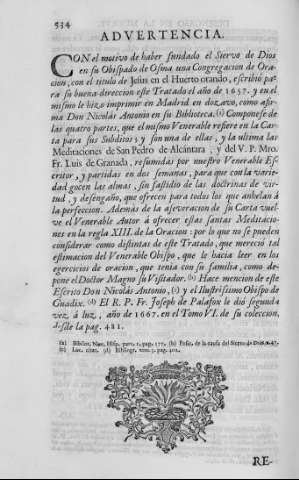 534
ADVERTENCIA.
CON el motivo de haber fundado el Siervo de Dios
en su Obispado de Osma una Congregacion de Ora-
cion, con el titulo de Jesus en el Huerto orando, escribió pa-
ra su buena direccion este Tratado el año de 1657. y en el
mismo le hizo imprimir en Madrid en dozavo, como afir-
ma Don Nicolás Antonio en su Biblioteca. (a) Componese de
las quatro partes, que el mismo Venerable refiere en la Car-
ta para sus Subditos; y aun una de ellas, y la ultima las
Meditaciones de San Pedro de Alcántara, y del V. P. Mro.
Fr. Luis de Granada, resumidas por nuestro Venerable Es-
critor, y partidas en dos semanas, para que con la varie-
dad gocen las almas, sin fastidio de las doctrinas de vir-
tud, y desengaño, que ofrecen para todos los que anhelan á
la perfeccion. Además de la aseveracion de su Carta vuel-
ve el Venerable Autor á ofrecer estas santas Meditacio-
nes en la regla XIII. de la Oracion: por lo que no se pueden
considerar como distintas de este Tratado, que mereció tal
estimacion del Venerable Obispo, que le hacia leer en los
egercicios de oracion, que tenia con su familia, como de-
pone el Doctor Magno su Visitador. (b) Hace mencion de este
Escrito Don Nicolás Antonio, (c) y el Ilustrisimo Obispo de
Guadix. (d) El R. P. Fr. Joseph de Palafox le dió segunda
vez á luz, año de 1667. en el Tomo VI. de su coleccion,
desde la pag. 481.
(a) Bibliot. Nov. Hisp. part. 2. pag. 171. (b) Posic. de la causa del Siervo de Dios
(c) Loc. citat. (d) Bibliogr. tom. 3. pag. 402.
RE-